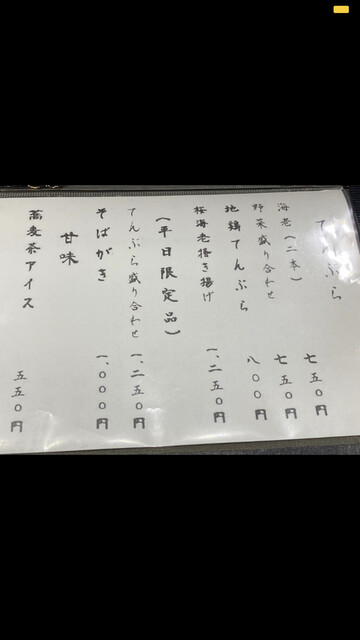 てんぷら
海老(二本) 七五〇円
野菜盛り合わせ 七五〇円
地鶏てんぷら 八〇〇円
桜海老掻き揚げ 一、二五〇円
(平日限定品)
てんぷら盛り合わせ 一、二五〇円
そばがき 一、〇〇〇円
甘味
蕎麦茶アイス 五五〇円